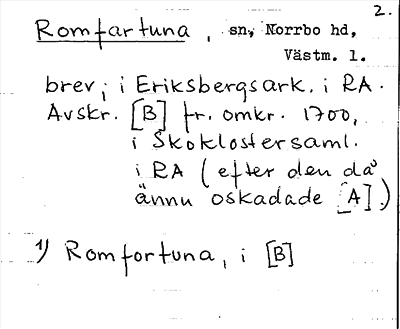 2.
Romfartuna, sn, Norrbo hd,
Västm. l.
brev; i Eriksbergsark. i RA.
Avskr. [B] fr. omkr. 1700,
i Skoklostersaml.
i RA (efter den då
ännu oskadade [A].)
1) Romfortuna, i [B]